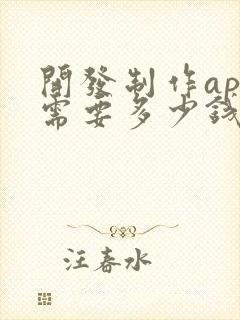 開發制作ap
需要多少錢
汪春水